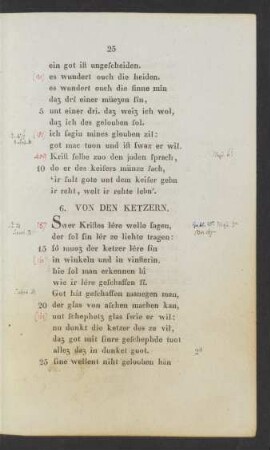 25
ein got ist ungescheiden.
es wundert ouch die heiden.
es wundert ouch die sinne min
daz dri einer müezen sin,
5 unt einer dri. daz weiz ich wol,
daz ich des gelouben sol.
ich sagin mines glouben zil:
got mac tuon unt iſt ſwaz er wil.
Kriſt ſelbe zuo den juden ſprach,
10 do er des keiſers münze ſach,
'ir ſult gote unt dem keiſer gebn
ir reht, welt ir rehte lebn'.
6. VON DEN KETZERN.
Swer Kriſtes lêre welle ſagen,
der ſol ſin lêr ze liehte tragen:
15 ſô muoz der ketzer lêre ſin
in winkeln und in vinſterin.
hie ſol man erkennen bî
wie ir lêre geſchaffen ſî.
Got hât geſchaffen manegen man,
20 der glas von aſchen machen kan,
unt ſchephetz glas ſwie er wil:
nu dunkt die ketzer des ze vil,
daz got mit ſînre geſchephde tuot
allez daz in dunket guot.
25 sine wellent niht gelouben hân